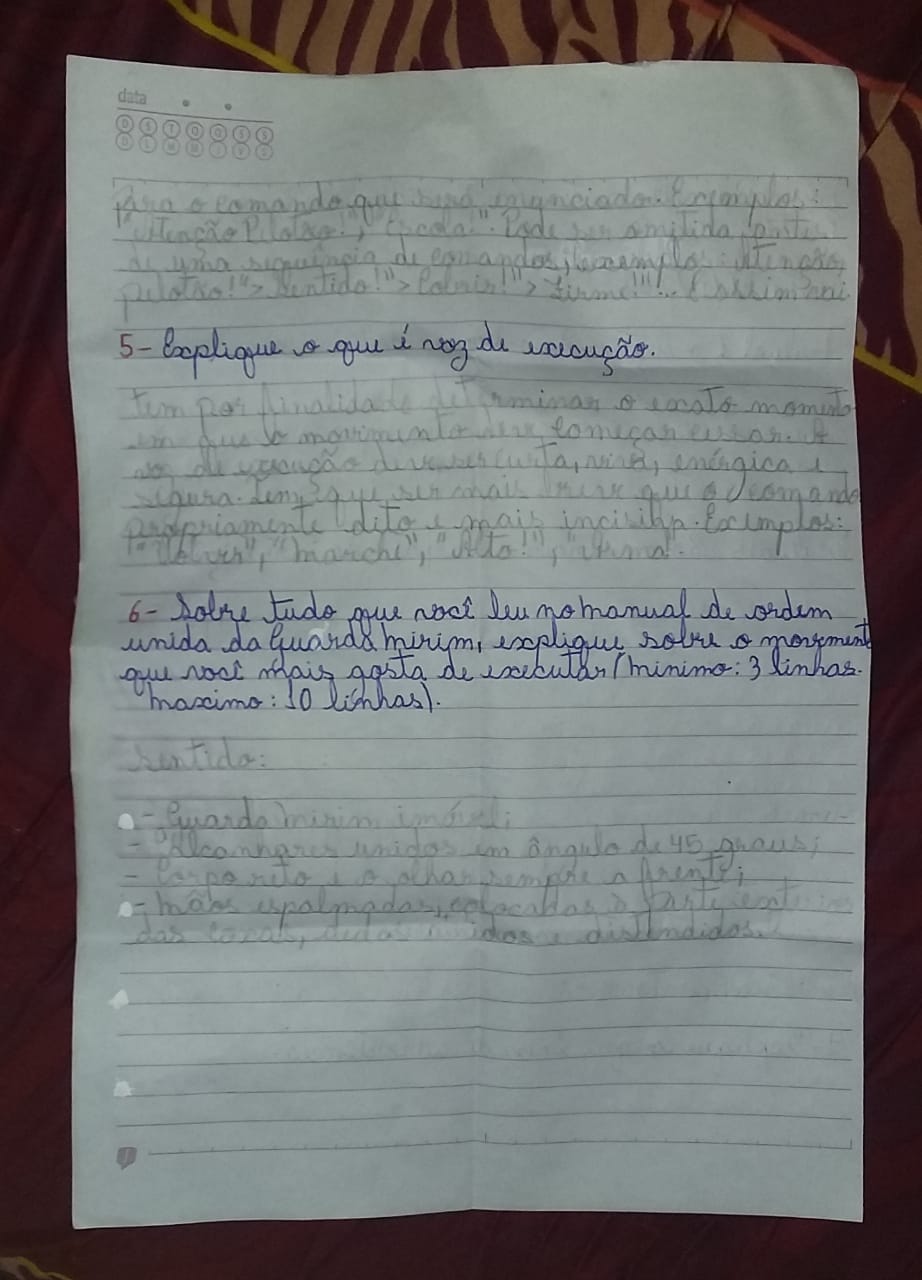 data
D S T Q Q S S
D L M M J V S
para o comando que será enunciado. Exemplos:
"Atenção Pelotão!", "Escola!". Pode ser omitida
de uma sequência de comandos, exemplo: Atenção,
pelotão!"> Sentido!"> Cobrir!"> Firme!"!... E assim
5- Explique o que é voz de execução.
tem por finalidade determinar o exato momento
em que o movimento deve começar cessar. A
voz de execução deve ser curta, viva, enérgica e
segura. tem que ser mais breve que o comando
propriamente dito e mais incisiva. Exemplos:
"Volver", "marche", "Alto!",
6- Sobre tudo que você leu no manual de ordem
unida da Guarda mirim, explique sobre o movimento
que você mais gosta de executar (minimo: 3 linhas.
maximo: 10 linhas).
Sentido:
- Guarda mirim imóvel;
- Calcanhares unidos em ângulo de 45 graus;
- Corpo reto e o olhar sempre a frente;
- mãos espalmadas, colocadas à parte
das coxas, dedos unidos e distendidos.